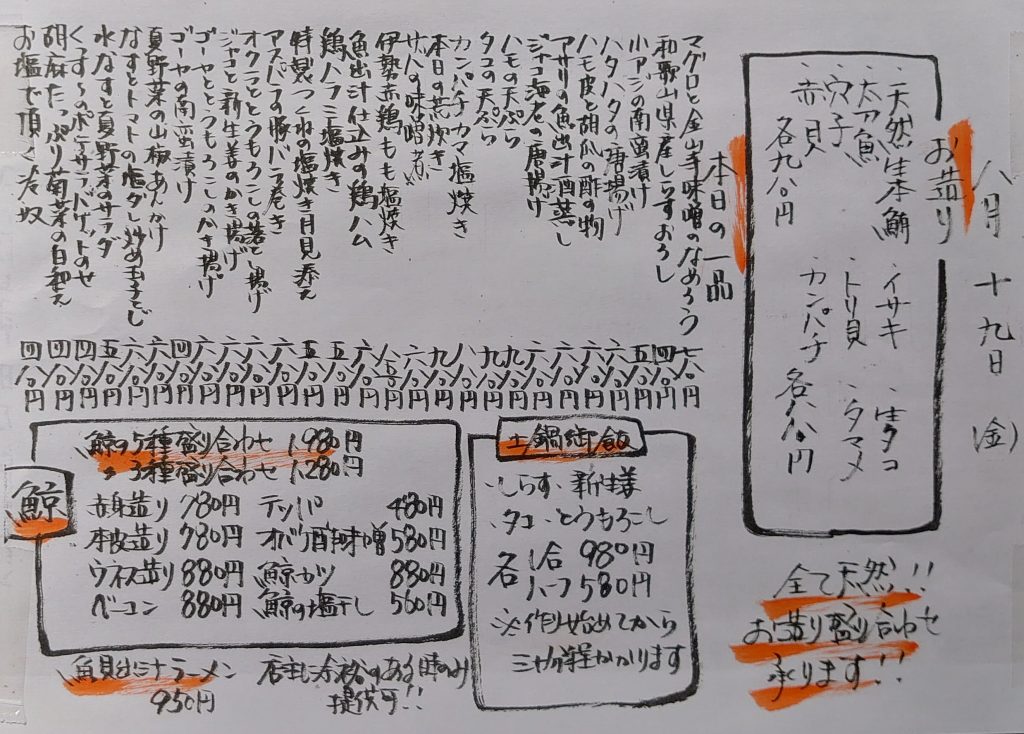 八月十九日(金)
お造り
・天然生本鮪
・太刀魚
・穴子
・赤貝
各九八〇円
・イサキ
・トリ貝
・カンパチ
・生タコ
・タマメ
各八八〇円
全て天然!!
お造り盛り合わせ
承ります!!
本日の一品
マグロと金山寺味噌のなめろう 七八〇円
和歌山県産しらすおろし 四八〇円
小アジの南蛮漬け 五八〇円
ハタハタの唐揚げ 六八〇円
ハモ皮と胡瓜の酢の物 六八〇円
アサリの魚出汁酒蒸し
ジャコ海老の唐揚げ 六八〇円
ハモの天ぷら 九八〇円
タコの天ぷら 九八〇円
カンパチカマ塩焼き 八八〇円
本日の荒炊き 九八〇円
サバの味噌煮 六八〇円
伊勢赤鶏もも塩焼き
魚出汁仕込みの鶏ハム 六八〇円
鶏ハラミ塩焼き 五八〇円
特製つくねの塩焼き月見添え 五八〇円
アスパラの豚バラ巻き 六八〇円
オクラととうもろこしの落とし揚げ 六八〇円
ジャコと新生姜のかき揚げ 六八〇円
ゴーヤととうもろこしのかき揚げ 六八〇円
ゴーヤの南蛮漬け 四八〇円
夏野菜の山椒あんかけ 六八〇円
なすとトマトの塩ダレ炒め玉子とじ 六八〇円
水なすと夏野菜のサラダ 五八〇円
くずし〜のポテサラバゲットのせ 四八〇円
胡麻たっぷり菊菜の白和え 四八〇円
お塩で頂く冷奴 四八〇円
土鍋御飯
・しらす・新生姜
・タコ・とうもろこし
各 一合 980円
ハーフ 580円
※作り始めてから
三十分程かかります
鯨
鯨の5種盛り合わせ 1,980円
〃3種盛り合わせ 1,280円
赤身造り 780円 テッパ 480円
本皮造り 780円 オバケ酢味噌 580円
ウネス造り 880円 鯨カツ 880円
ベーコン 880円 鯨の塩干し 560円
魚貝出汁ラーメン 950円
店主に余裕のある時のみ
提供可!!